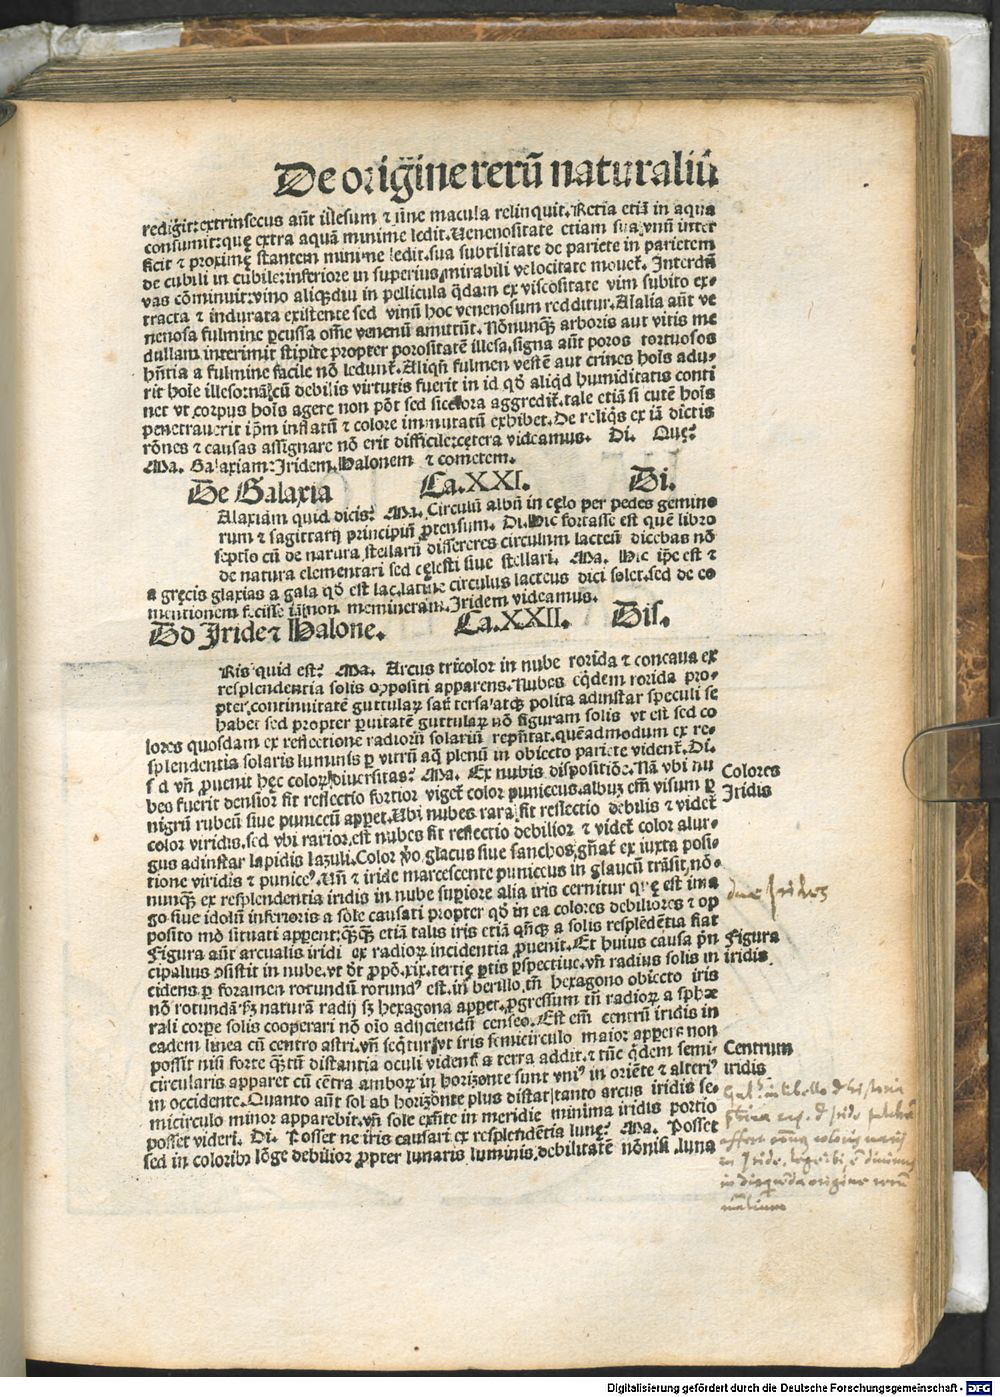 De origine rerū naturaliū
redigit: extrinsecus aūt illesum & sine macula relinquit. Retia etiā in aqua
consumit: quę extra aquā minime ledit. Uenenositate etiam sua vinū inter
ficit & proximę stantem minime ledit. sua subtilitate de pariete in parietem
de cubili in cubile: inferiore in superius, mirabili velocitate mouet̄. Interdū
vas cōminuit: vino aliqͣdiu in pellicula q̄dam ex viscositate vim subito ex⸗
tracta & indurata existente sed vinū hoc venenosum redditur. Alalia aūt ve
nenosa fulmine ꝑcussa om̄e venenū amittūt. Nōnunqͣꝫ arboris aut vitis me
dullam interimit stipite propter porositatē illesa, signa aūt poros tortuosos
hn̄tia a fulmine facile nō ledunt̄. Aliqn̄ fulmen vestē aut crines hoīs adu⸗
rit hoīe illeso: nā cū debilis virtutis fuerit in id qd̄ aliqd humiditatis conti
net vt corpus hoīs agere non pōt sed sicciora aggredit̄. tale etiā si cutē hoīs
penetrauerit ip̄m inflatū & colore immutatū exhibet. De reliqͥs ex iā dictis
rōnes & causas assignare nō erit difficile: cętera videamus. Di. Quę?
Ma. Galaxiam: Iridem. Halonem & cometem.
De Galaxia Ca. XXI. Di.
Alaxiam quid dicis? Ma. Circulū albū in cęlo per pedes gemino
rum & sagittarij principiū ꝓtensum. Di. Hic fortasse est quē libro
septio cū de natura stellarū dissereres circulum lacteū dicebas nō
de natura elementari sed cęlesti siue stellari. Ma. Hic ip̄e est &
a gręcis glaxias a gala qd̄ est lac. latine circulus lacteus dici solet. sed de eo
mentionem fecisse iā non memineram. Iridem videamus.
Dd Iride & Halone. Ca. XXII. Dis.
Ris quid est? Ma. Arcus tricolor in nube rorida & concaua ex
resplendentia solis oppositi apparens. Nubes eq̄dem rorida pro⸗
pter continuitatē guttulaꝝ sat̄ tersa atqꝫ polita adinstar speculi se
habet sed propter ꝑuitatē guttulaꝝ nō figuram solis vt est sed co
lores quosdam ex reflectione radiorū solariū repn̄tat. quēadmodum ex re⸗
splendentia solaris luminis ꝑ vitrū aq̄ plenū in obiecto pariete vident̄. Di.
s d vn̄ ꝓuenit hęc coloꝝ diuersitas? Ma. Ex nubis dispositiōe. Nā vbi nu
bes fuerit densior fit reflectio fortior viget̄ color puniceus. albuꝫ em̄ visum ꝑ
nigrū rubeū siue puniceū apparet. Ubi nubes rara fit reflectio debilis & videt̄
color viridis. sed vbi rarior est nubes fit reflectio debilior & videt̄ color alur⸗
gus adinstar lapidis lazuli. Color ꝟo glacus siue fanchos, gn̄at̄ ex iuxta posi⸗
tione viridis & puniceꝰ. Un̄ & iride marcescente puniceus in glaucū trāsit, nō⸗
nunqꝫ ex resplendentia iridis in nube supiore alia iris cernitur quę est ima
go siue idolū inferioris a sole causati propter qd̄ in ea colores debiliores & op
posito mō situati apparent: qͣꝫqͣꝫ etiā talis iris etiā qn̄qꝫ a solis resplēdētia fiat
Figura aūt arcualis iridi ex radioꝝ incidentia ꝓuenit. Et huius causa prin
cipalius ꝯsistit in nube. vt dt̄ ꝓpō. xix. tertię ꝑtis ꝑspectiue. vn̄ radius solis in
cidens ꝑ foramen rotundū rotundꝰ est. in berillo tn̄ hexagono obiecto iris
nō rotundā sꝫ naturā radij sꝫ hexagona apparet. ꝓgressum tn̄ radioꝝ a sphę
rali corpe solis cooperari nō oīo adijciendū censeo. Est em̄ centrū iridis in
eadem linea cū centro astri. vn̄ seqͥtur vt iris semicirculo maior apparere non
possit nisi forte qͣꝫtū distantia oculi videntis a terra addit. & tūc q̄dem semi⸗
circularis apparet cū cētra amboꝝ in horizonte sunt vniꝰ in oriēte & alteriꝰ
in occidente. Quanto aūt sol ab horizōnte plus distat, tanto arcus iridis se⸗
micirculo minor apparebit. vn̄ sole existēte in meridie minima iridis portio
posset videri. Di. Posset ne iris causari ex resplendētia lunę? Ma. Posset
sed in coloribꝰ lōge debilior ꝓpter lunaris luminis, debilitatē nō nisi luna
Colores
Iridis
due Irides
Figura
iridis
Centrum
iridis